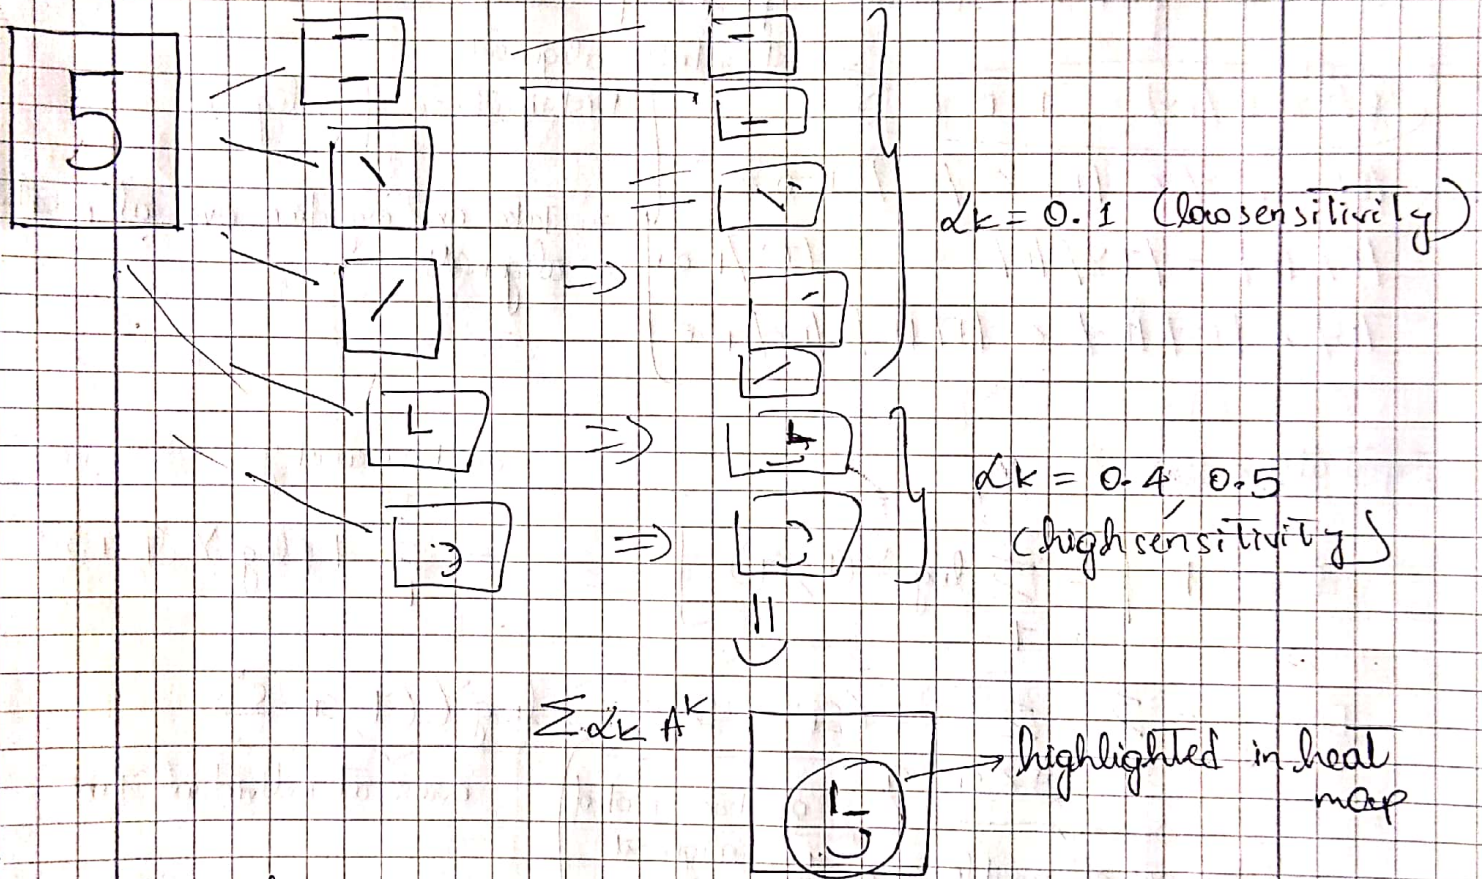 5
αk = 0.1 (low sensitivity)
αk = 0.4, 0.5
(high sensitivity)
Σ αk A^k
5
highlighted in heat
map